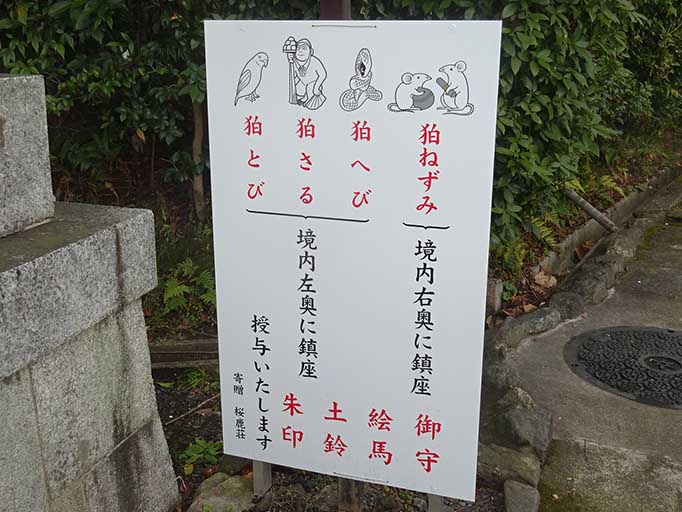 狛ねずみ
狛へび
狛さる
狛とび
境内右奥に鎮座
境内左奥に鎮座
御守
絵馬
土鈴
朱印
授与いたします
寄贈 桜鹿荘